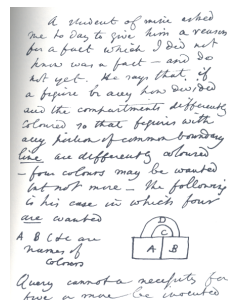 A student of mine asked
me to day to give him a reason
for a fact which I did not
know was a fact — and do
not yet. He says that if
a figure be any how divided
and the compartments differently
coloured so that figures with
any portion of common boundary
line are differently coloured
— four colours may be wanted
but not more — the following
is his case in which four
are wanted
D
C
A B
A B C &c are
names of
colours
Query cannot a necessity for
five or more be invented